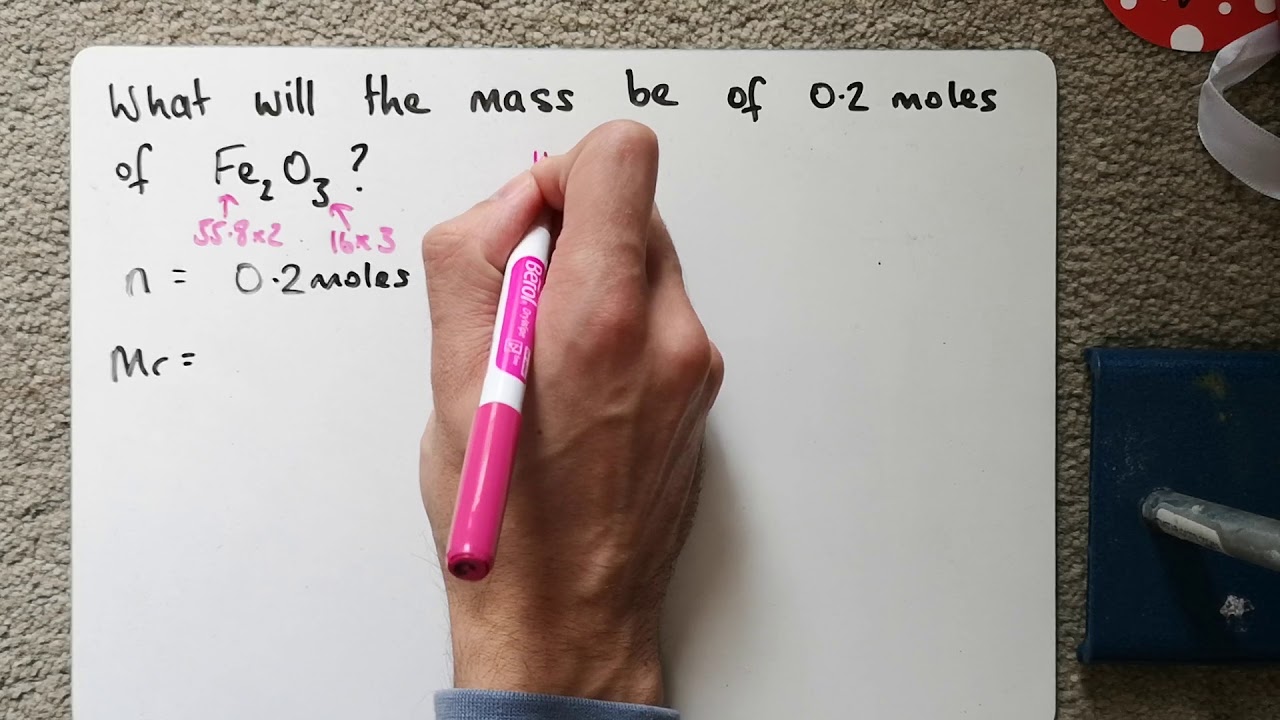 What will the mass be of 0.2 moles
of Fe₂O₃?
55.8×2 16×3
n = 0.2 moles
Mr =
Berol